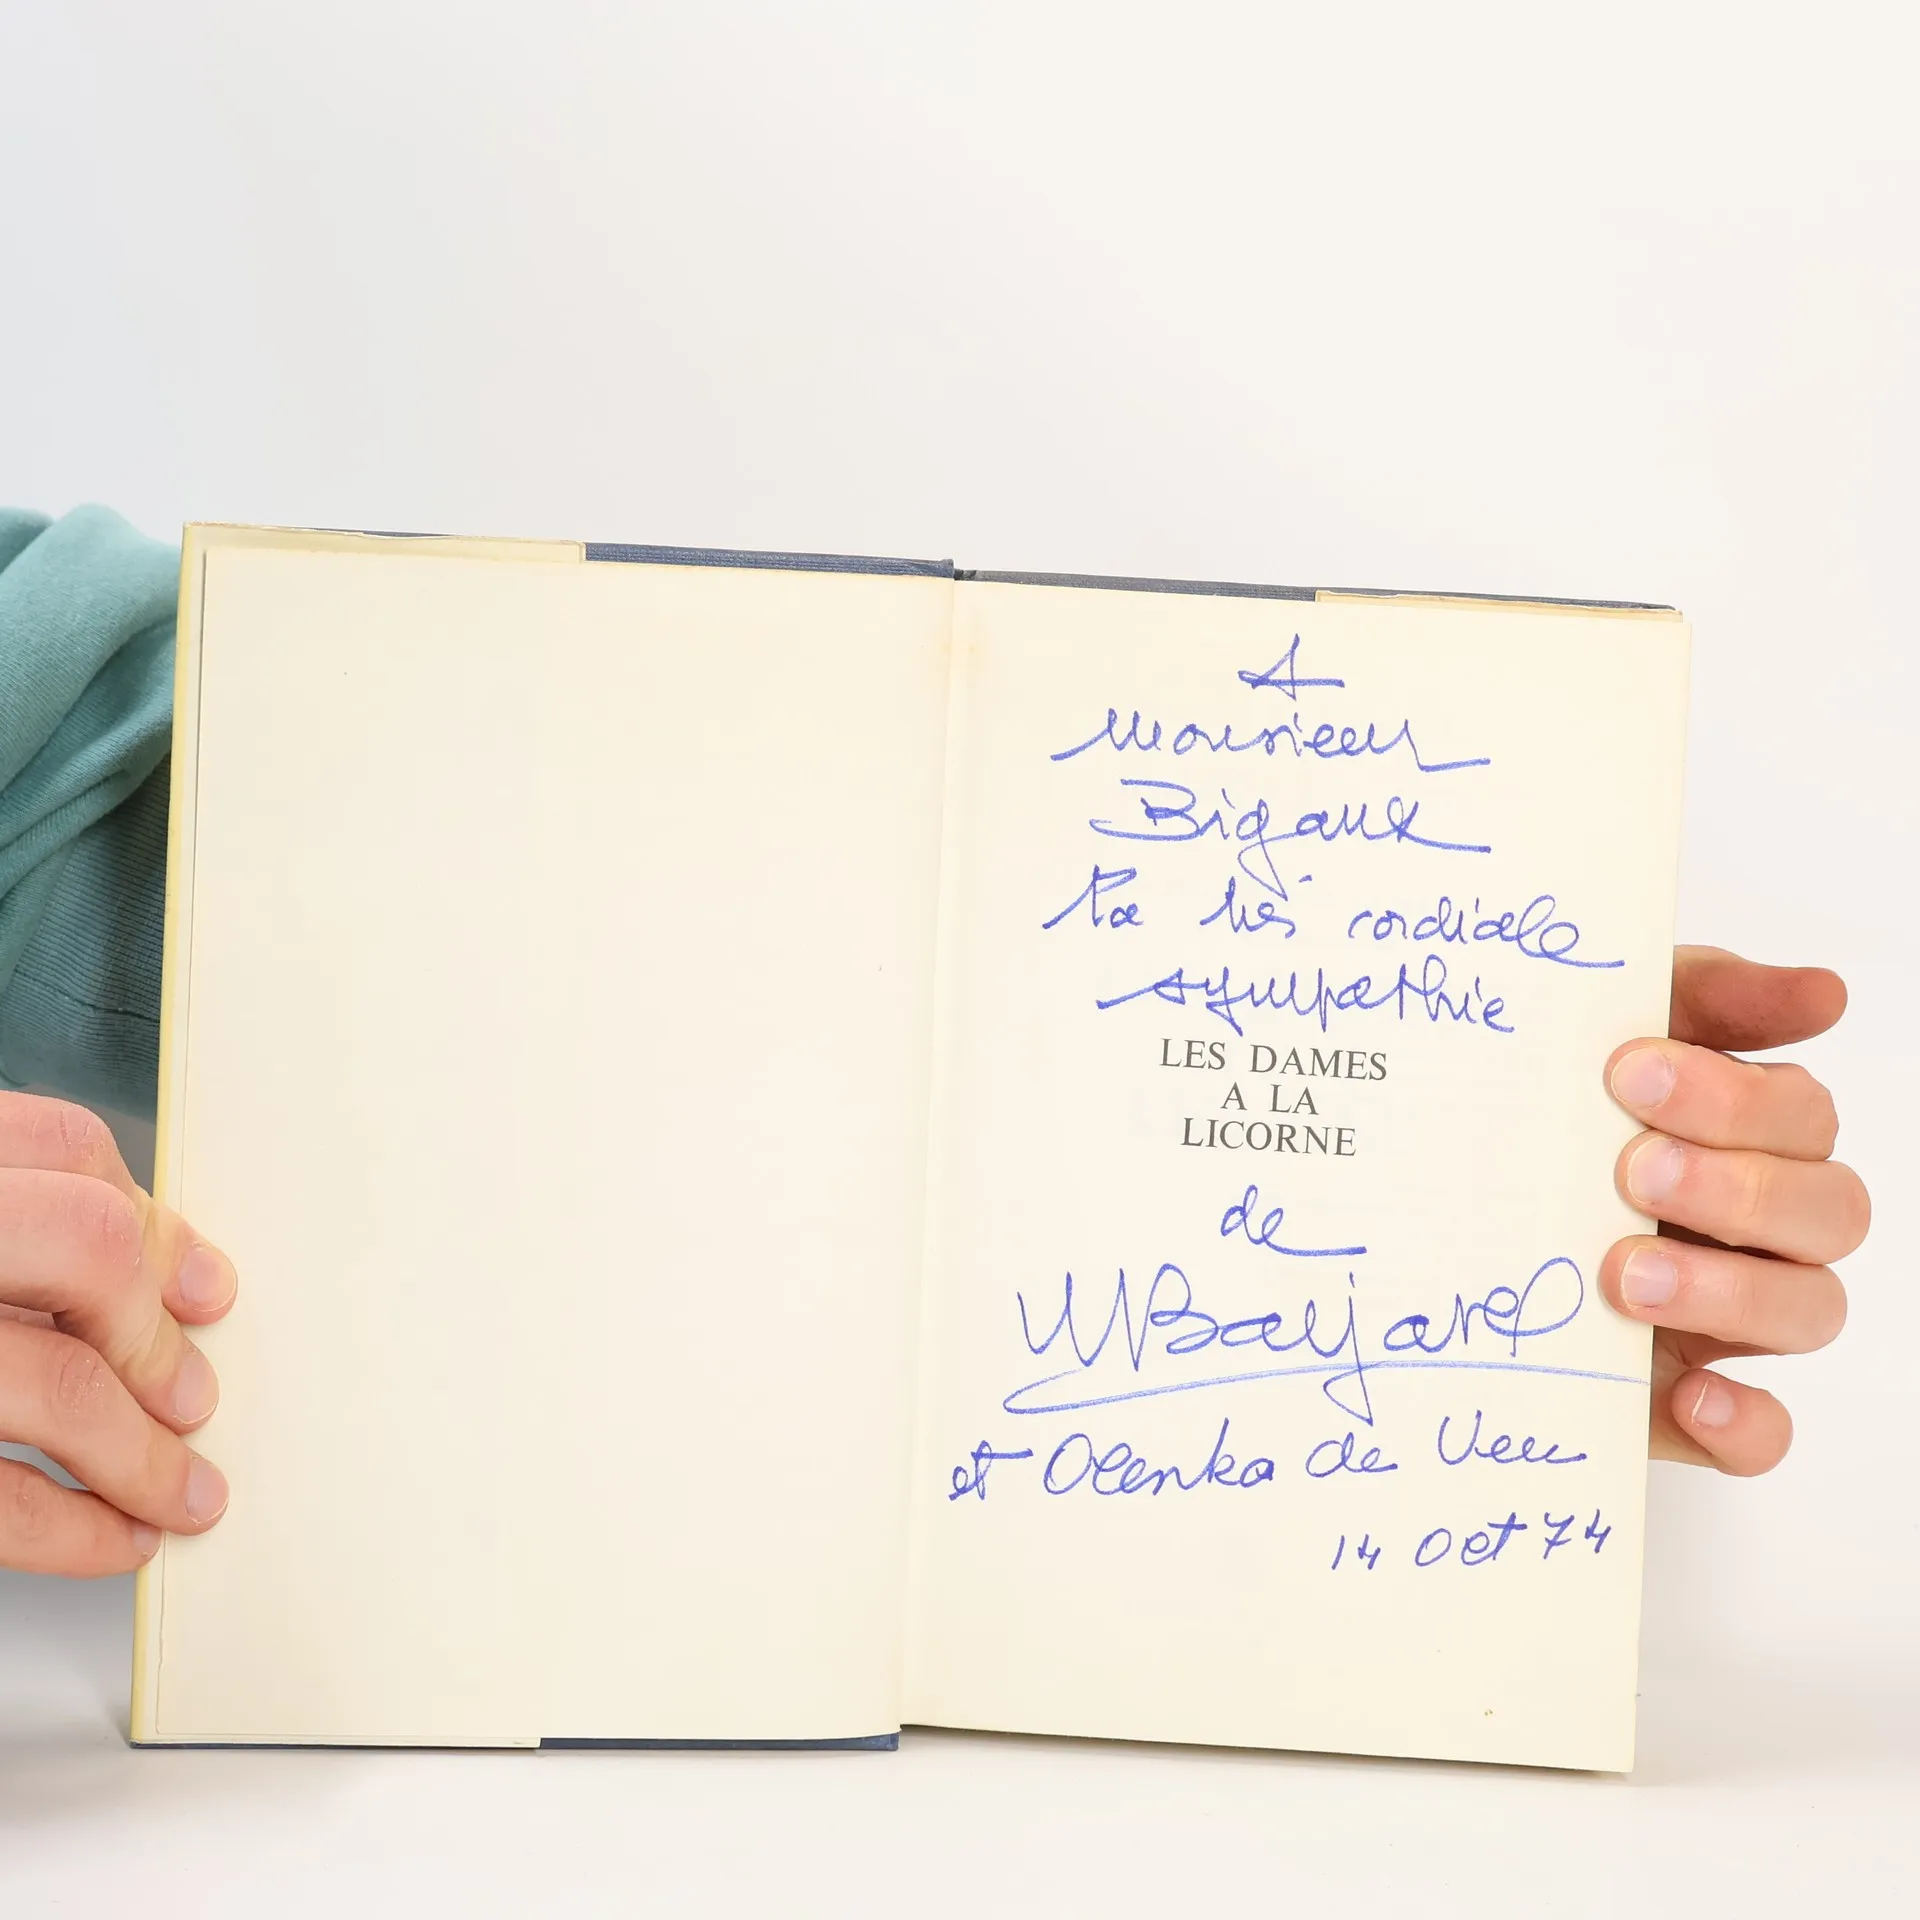 A
Monsieur
Bigaux
ta très cordiale
sympathie
LES DAMES
A LA
LICORNE
de
M Barjavel
et Olenka de Veer
14 Oct 74